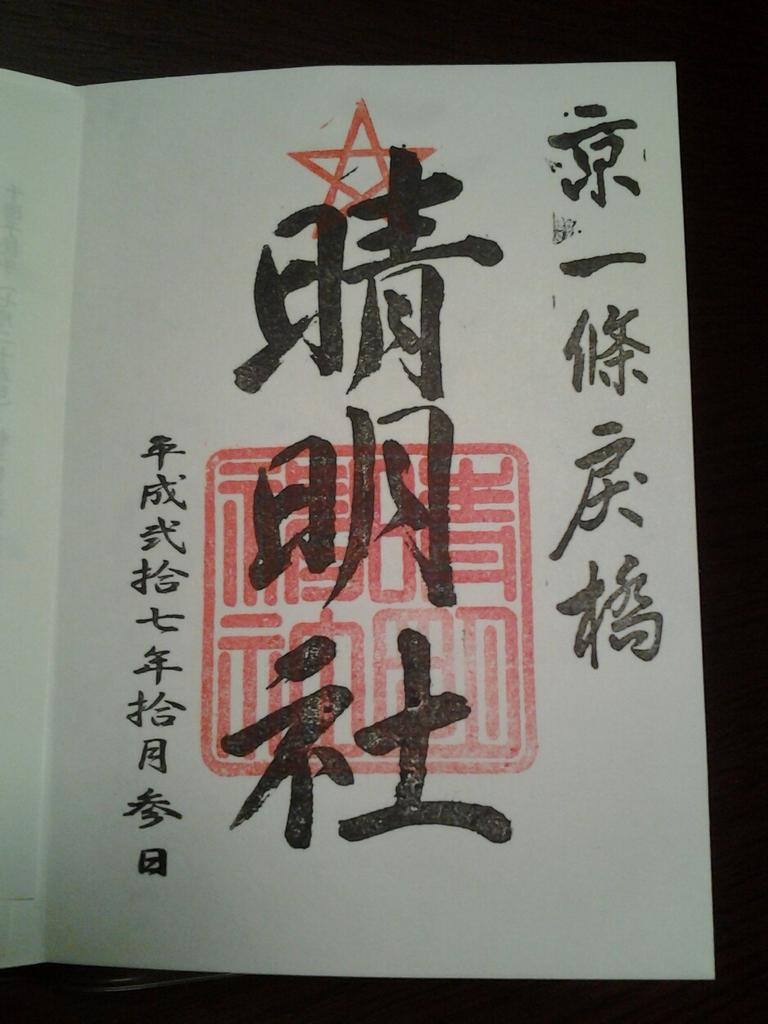 京一條戻橋
晴明社
平成弐拾七年拾月参日